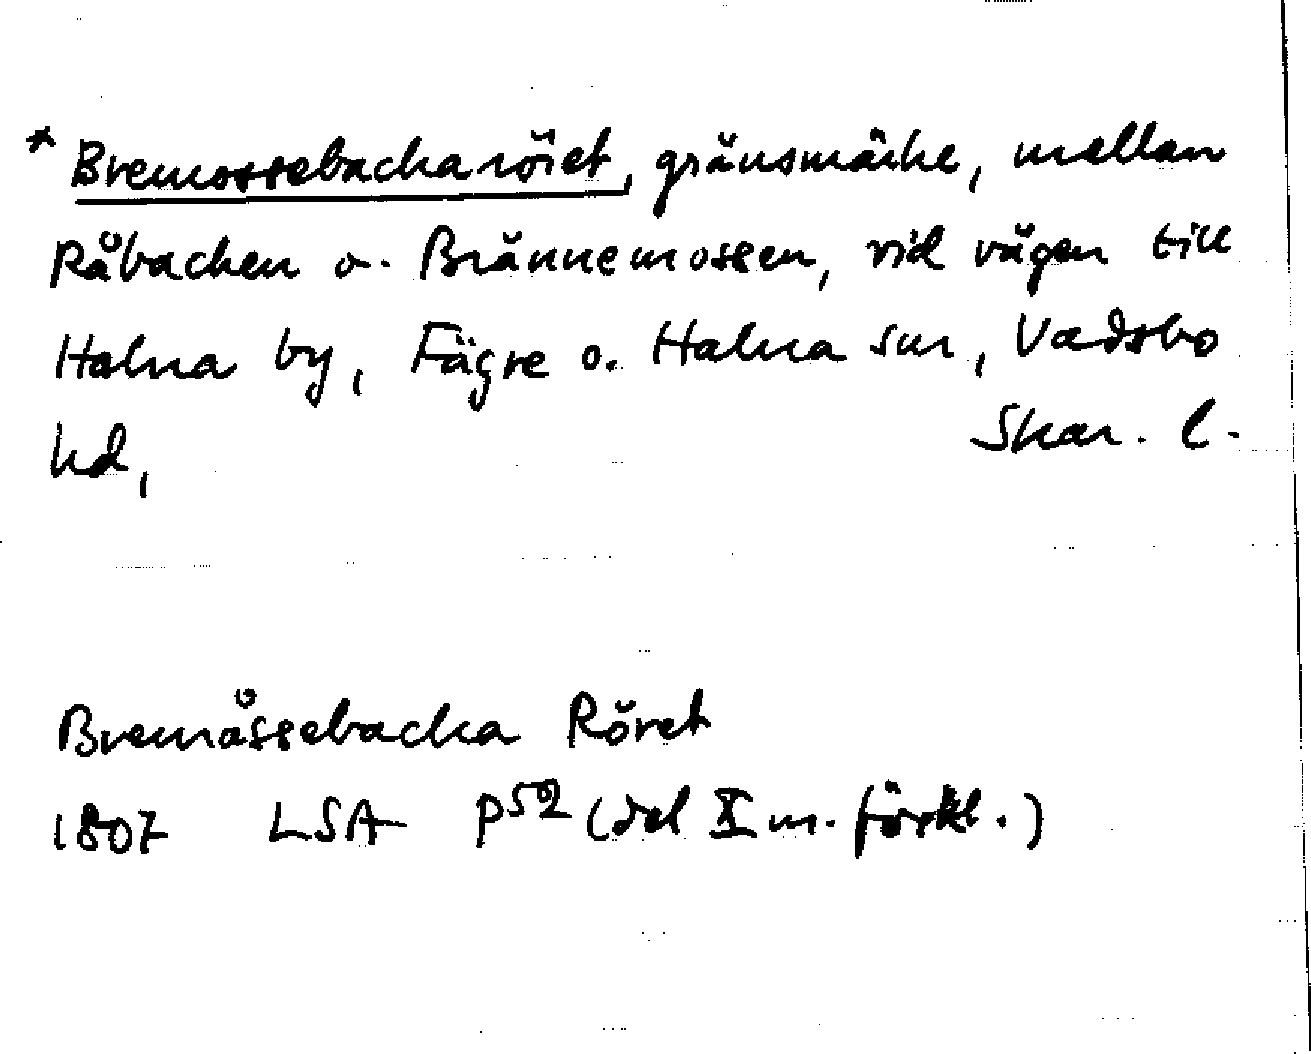 * Bremossebackaröret, gränsmärke, mellan
Råbacken o. Brännemossen, vid vägen till
Halna by, Fägre o. Halna snr, Vadsbo
hd, Skar. l.
Bremåssebacka Röret
1807 LSA P52 (del X m. förkl.)